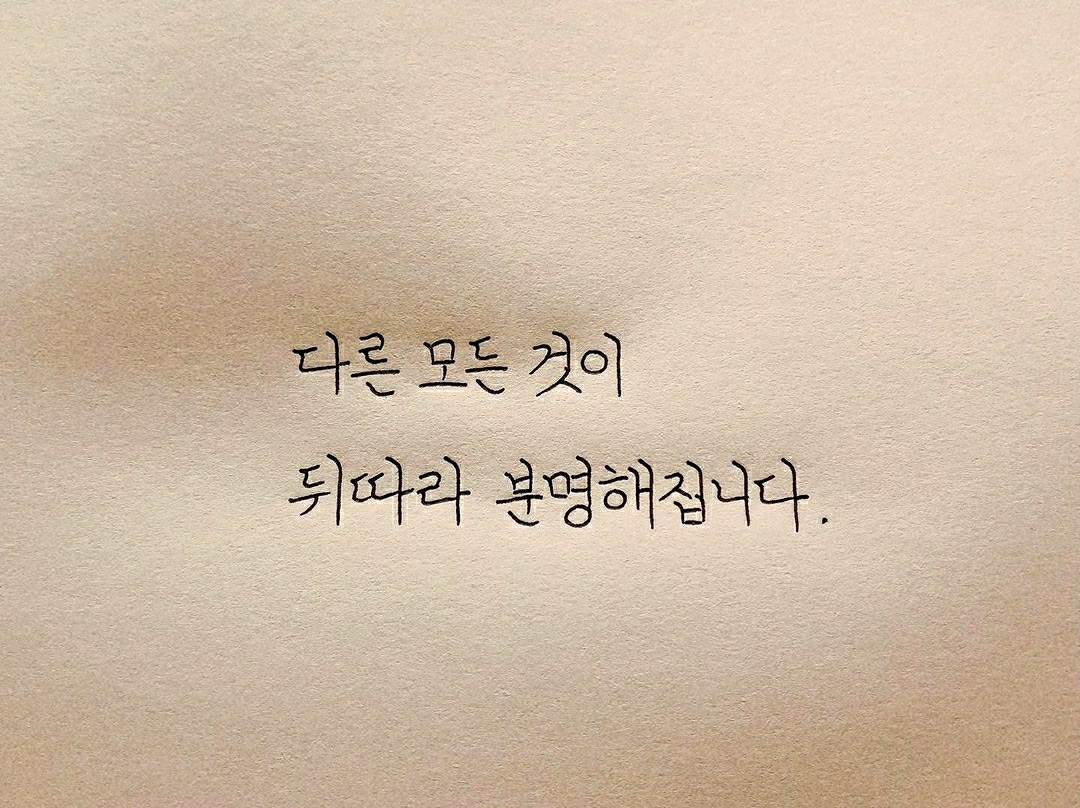 다른 모든 것이
뒤따라 분명해집니다.